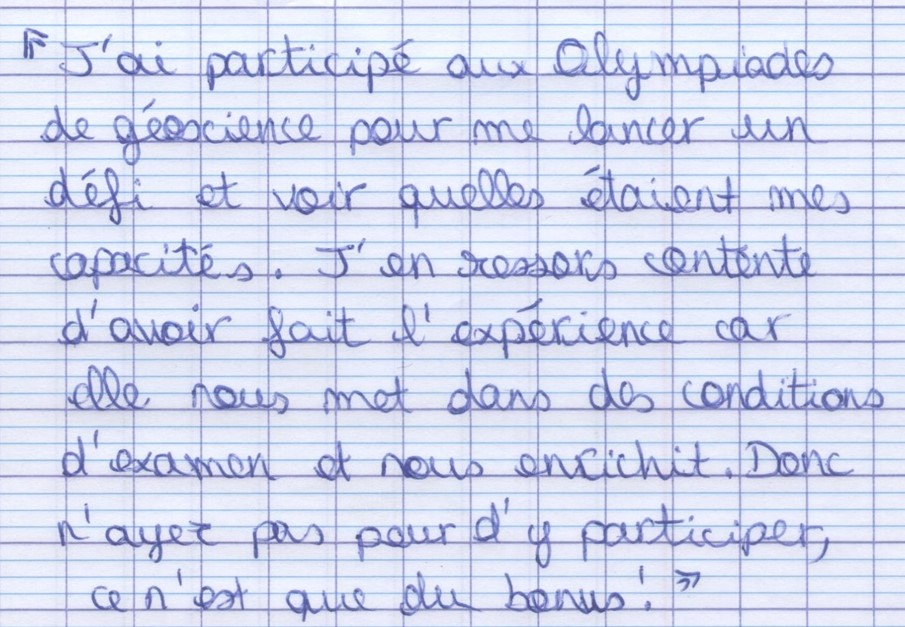 « J'ai participé aux Olympiades
de géoscience pour me lancer un
défi et voir quelles étaient mes
capacités. J'en ressors contente
d'avoir fait l'expérience car
elle nous met dans des conditions
d'examen et nous enrichit. Donc
n'ayez pas peur d'y participer,
ce n'est que du bonus ! »